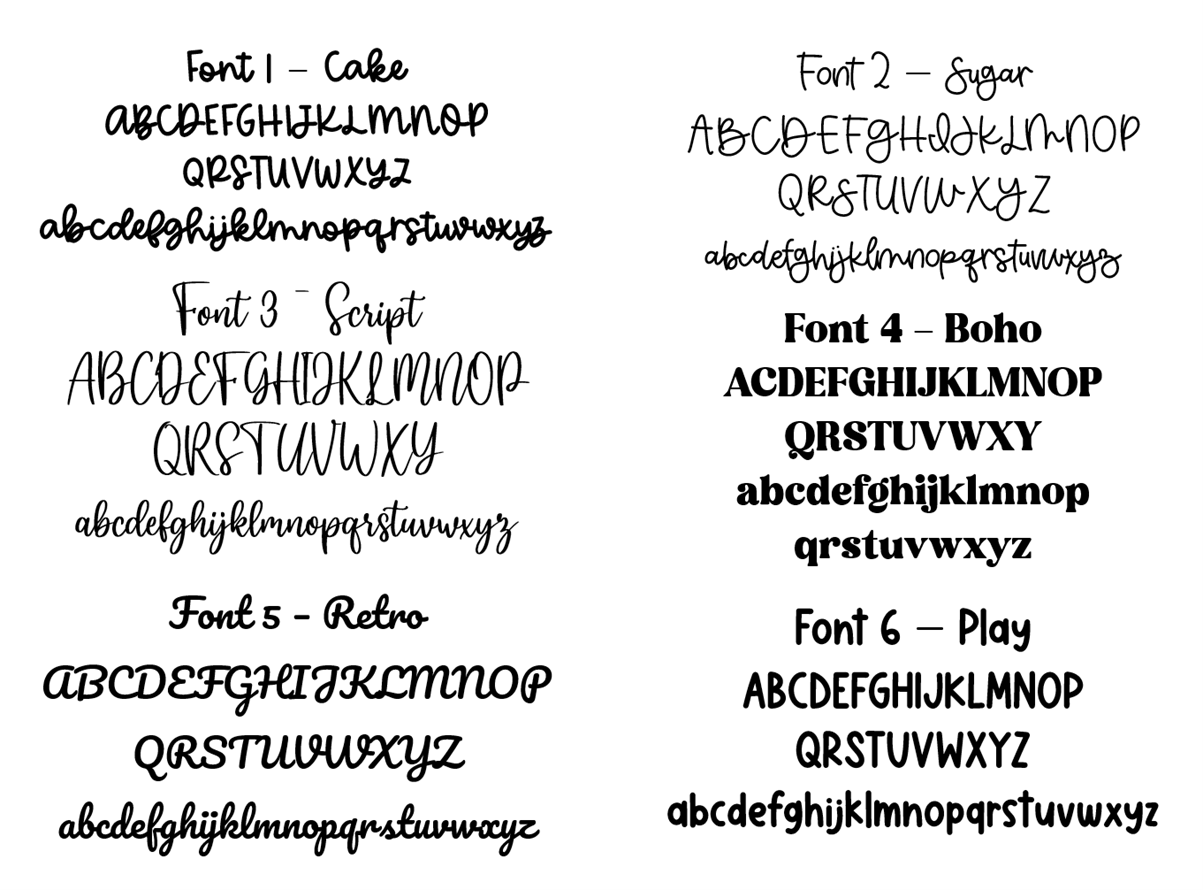 Font 1 – Cake
ABCDEFGHIJKLMNOP
QRSTUVWXYZ
abcdefghijklmnopqrstuvwxyz
Font 2 – Sugar
ABCDEFGHIJKLMNOP
QRSTUVWXYZ
abcdefghijklmnopqrstuvwxyz
Font 3 - Script
ABCDEFGHIJKLMNOP
QRSTUVWXY
abcdefghijklmnopqrstuvwxyz
Font 4 – Boho
ACDEFGHIJKLMNOP
QRSTUVWXY
abcdefghijklmnop
qrstuvwxyz
Font 5 - Retro
ABCDEFGHIJKLMNOP
QRSTUVWXYZ
abcdefghijklmnopqrstuvwxyz
Font 6 – Play
ABCDEFGHIJKLMNOP
QRSTUVWXYZ
abcdefghijklmnopqrstuvwxyz